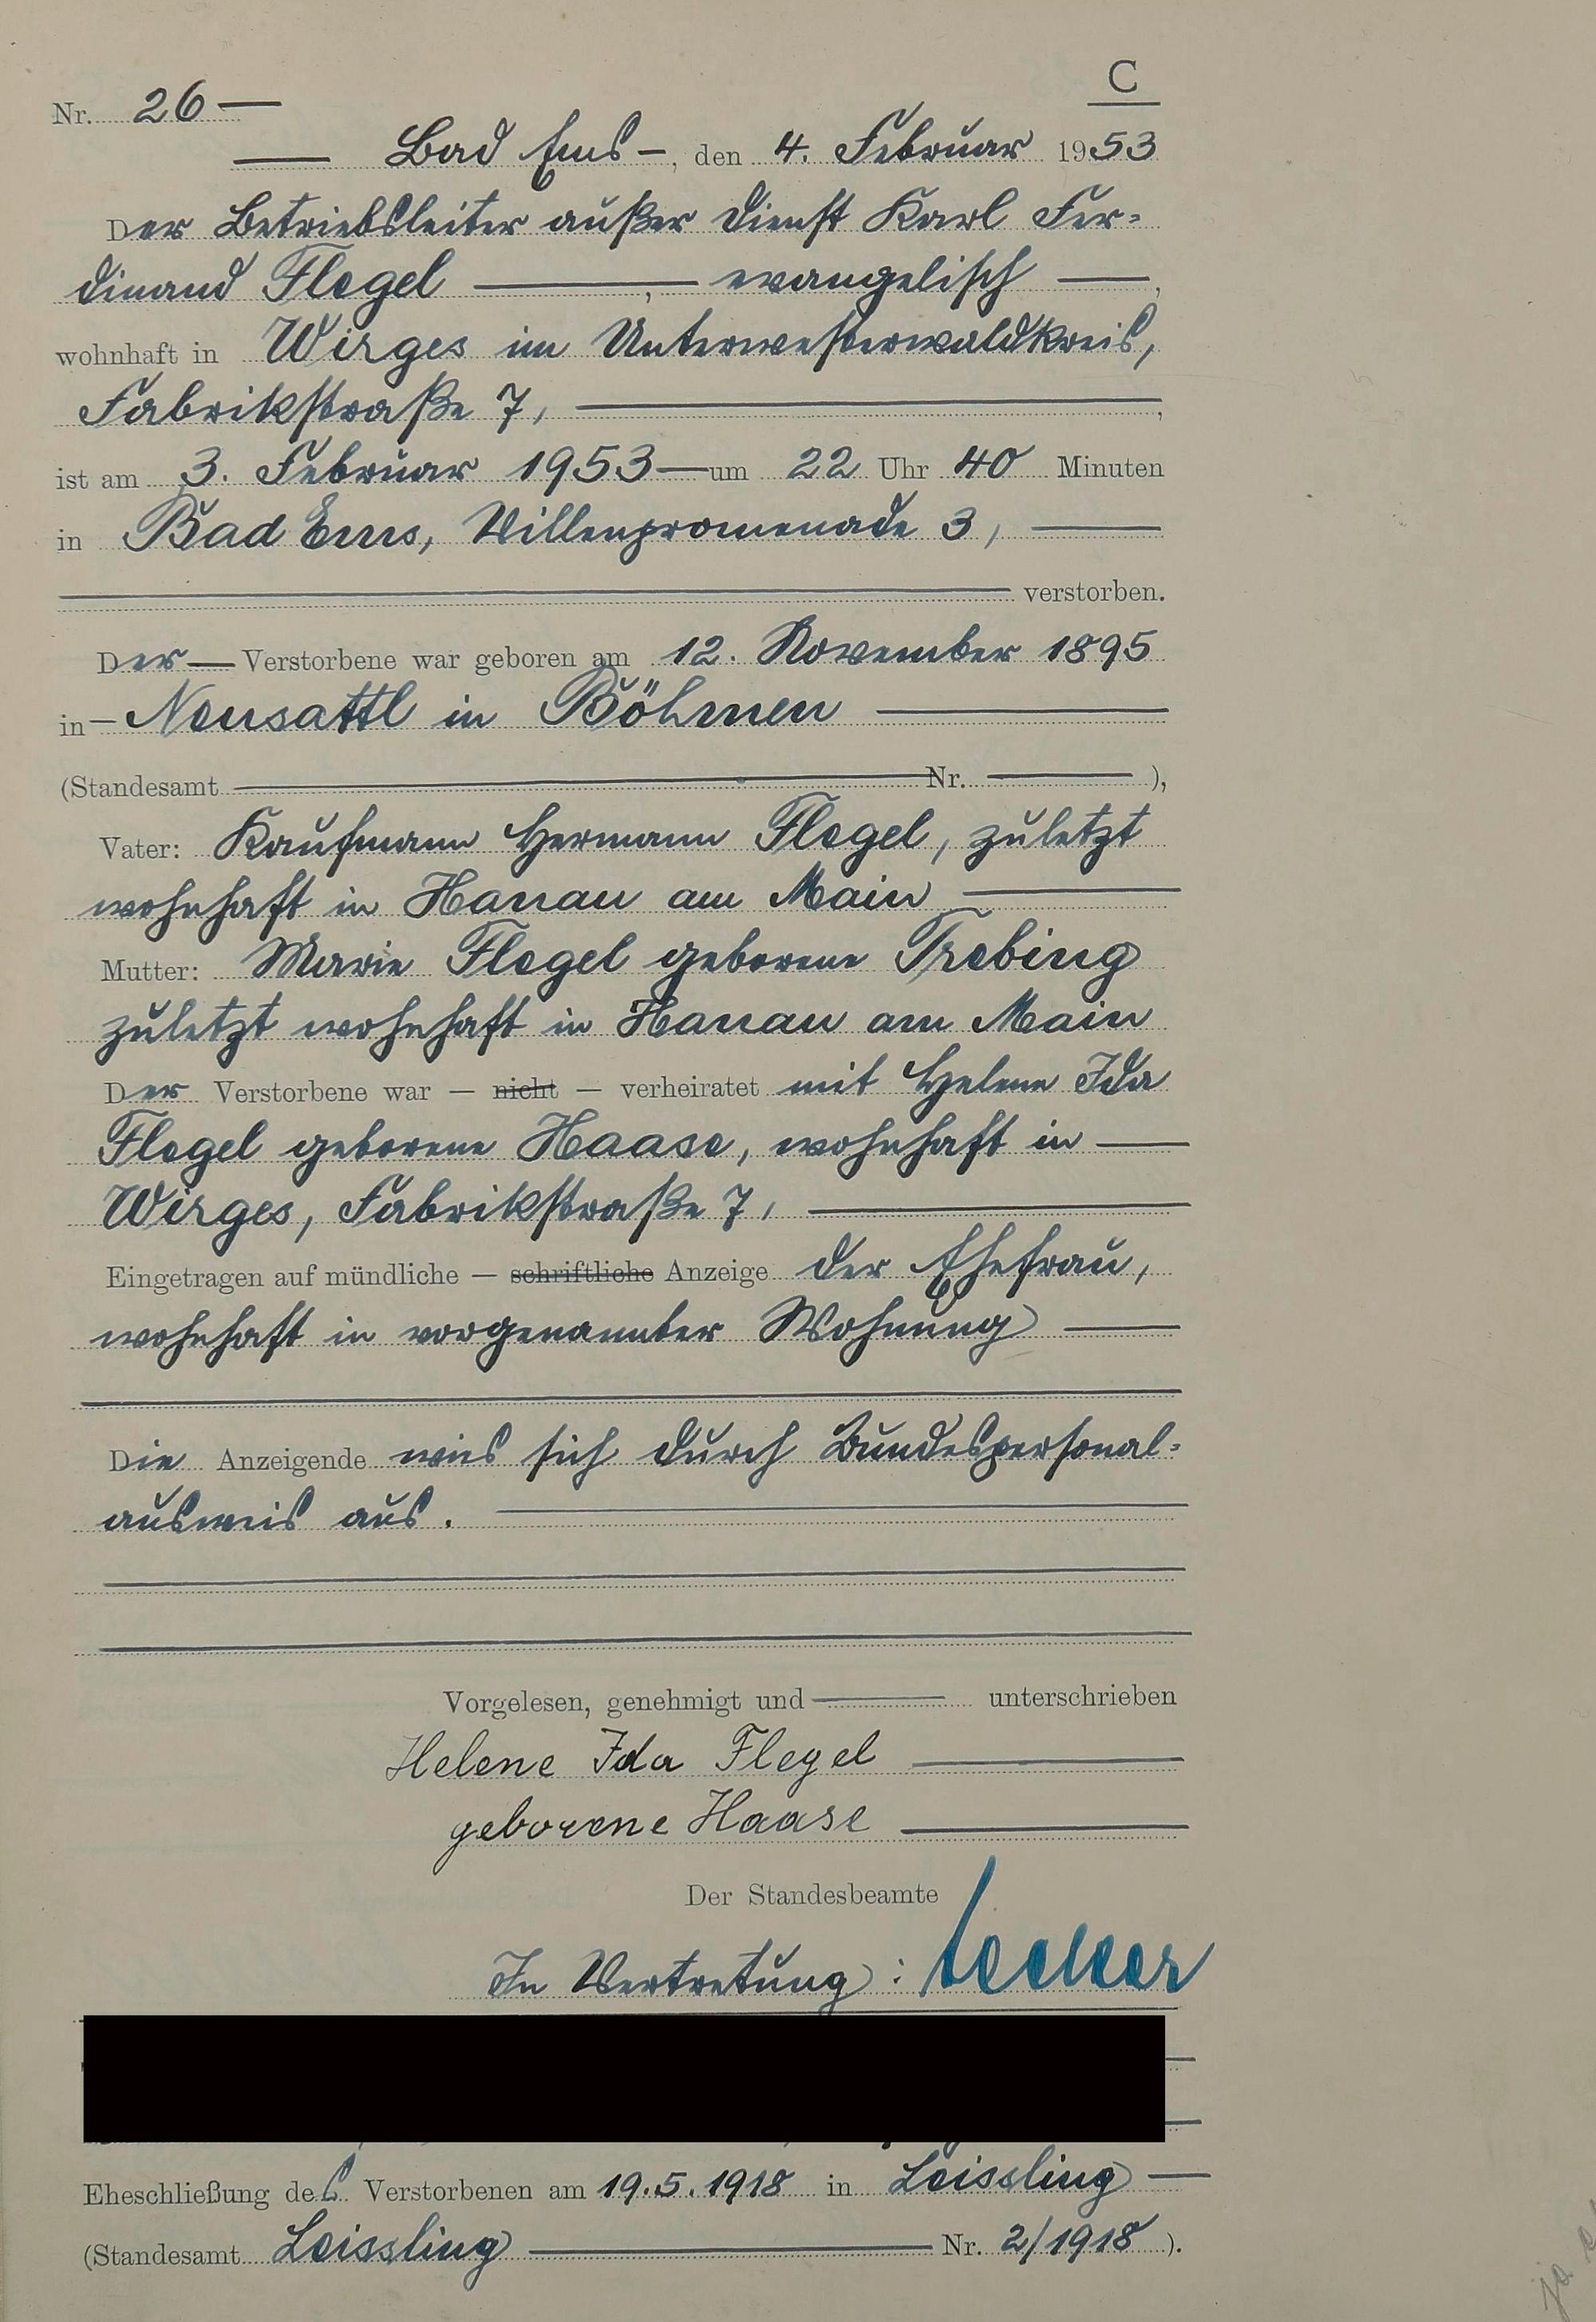 C
Nr. 26 —
— Bad Ems —, den 4. Februar 1953
Der Betriebsleiter außer Dienst Karl Fer=
dinand Flegel —, — evangelisch —,
wohnhaft in Wirges im Unterwesterwaldkreis,
Fabrikstraße 7, —,
ist am 3. Februar 1953 — um 22 Uhr 40 Minuten
in Bad Ems, Villenpromenade 3, —
— verstorben.
Der — Verstorbene war geboren am 12. November 1895
in — Neusattl in Böhmen —
(Standesamt — Nr. — ),
Vater: Kaufmann Hermann Flegel, zuletzt
wohnhaft in Hanau am Main —
Mutter: Marie Flegel geborene Trebing
zuletzt wohnhaft in Hanau am Main
Der Verstorbene war — nicht — verheiratet mit Helene Ida
Flegel geborene Haase, wohnhaft in —
Wirges, Fabrikstraße 7, —
Eingetragen auf mündliche — schriftliche Anzeige der Ehefrau,
wohnhaft in vorgenannter Wohnung —
Die Anzeigende wies sich durch Bundespersonal=
ausweis aus. —
Vorgelesen, genehmigt und — unterschrieben
Helene Ida Flegel —
geborene Haase —
Der Standesbeamte
In Vertretung:
Eheschließung des Verstorbenen am 19.5.1918 in Leissling —
(Standesamt Leissling — Nr. 2/1918 ).